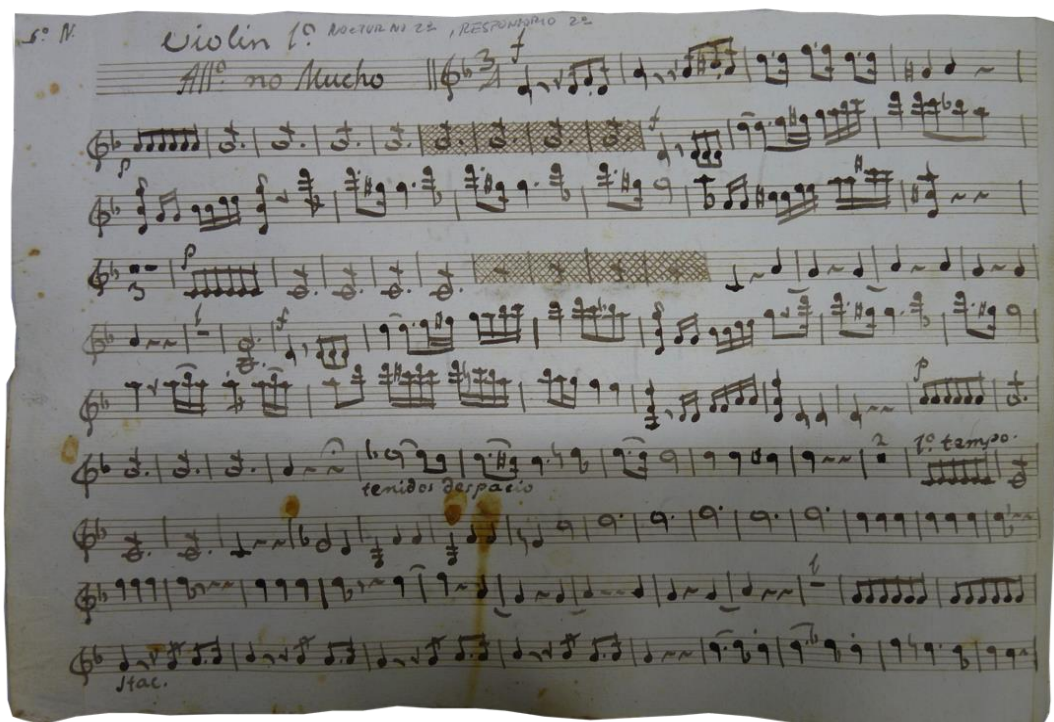 6º N.
Violin 1º NOCTURNO 2º, RESPONSORIO 2º
All.º no Mucho
f
3
4
p
f
3
p
1
f
p
2
1º tempo.
tenidos despacio
1
stac.